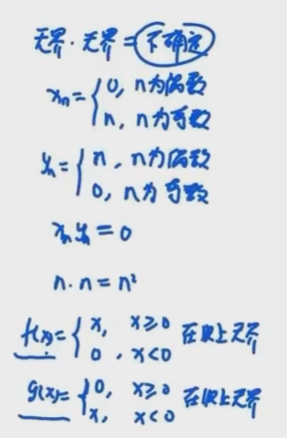 无界·无界=不确定
xₙ={0, n为偶数
n, n为奇数
yₙ={n, n为偶数
0, n为奇数
xₙyₙ=0
n·n=n²
f(x)={x, x≥0 在R上无界
0, x<0
g(x)={0, x≥0 在R上无界
x, x<0